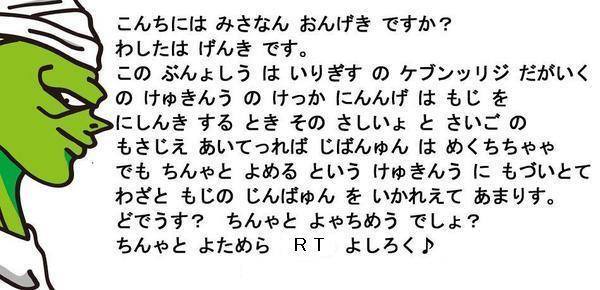 こんちには みさなん おんげき ですか？
わしたは げんき です。
この ぶんょしう は いりぎす の ケブンッリジ だがいく
の けゅきんう の けっか にんんげ は もじ を
にしんき する とき その さしいょ と さいご の
もさじえ あいてっれば じばんゅん は めくちちゃゃ
でも ちんゃと よめる という けゅきんう に もづいとて
わざと もじの じんばゅん を いかれえて あまりす。
どでうす？ ちんゃと よゃちめう でしょ？
ちんゃと よためら ＲＴ よしろく♪